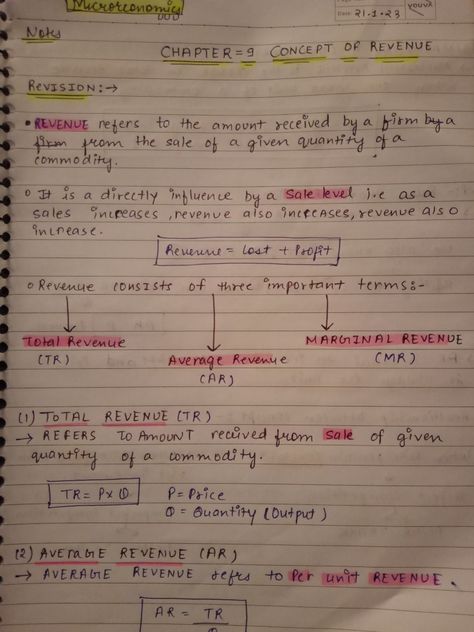 Microeconomics
Date 21-1-23
YOUVA
Notes
CHAPTER = 9 CONCEPT OF REVENUE
REVISION :→
• REVENUE refers to the amount received by a firm by a
firm from the sale of a given quantity of a
commodity.
○ It is a directly influence by a Sale level i.e as a
sales increases, revenue also increases, revenue also
increase.
Revenue = Cost + Profit
○ Revenue consists of three important terms:-
Total Revenue
(TR)
Average Revenue
(AR)
MARGINAL REVENUE
(MR)
(1) TOTAL REVENUE (TR)
→ REFERS TO AMOUNT received from Sale of given
quantity of a commodity.
TR = P x Q
P = Price
Q = Quantity (Output)
(2) AVERAGE REVENUE (AR)
→ AVERAGE REVENUE refers to Per unit REVENUE.
AR = TR
Q